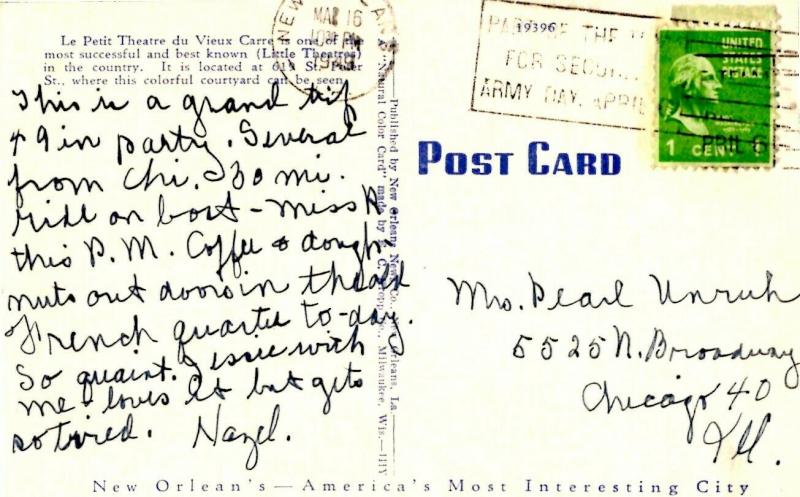 Le Petit Theatre du Vieux Carre is one of the
most successful and best known (Little Theatres)
in the country. It is located at 616 St. Peter
St., where this colorful courtyard can be seen.
This is a grand trip
49 in party. Several
from Chi. 30 mi.
ride on boat - Miss R
this P.M. Coffee & dough-
nuts out doors in the old
French quarter to-day.
So quaint. Jessie with
me - loves it but gets
so tired. Hazel.
Published by New Orleans News Co., New Orleans, La.
"Natural Color Card" made by E. C. Kropp Co., Milwaukee, Wis.
NEW
LA
MAR 16
19396
FOR SECUR
ARMY DAY, APRIL 6
UNITED
STATES
POSTAGE
1 CENT 1
POST CARD
Mrs. Pearl Unruh
5525 N. Broadway
Chicago 40
Ill.
New Orlean's — America's Most Interesting City